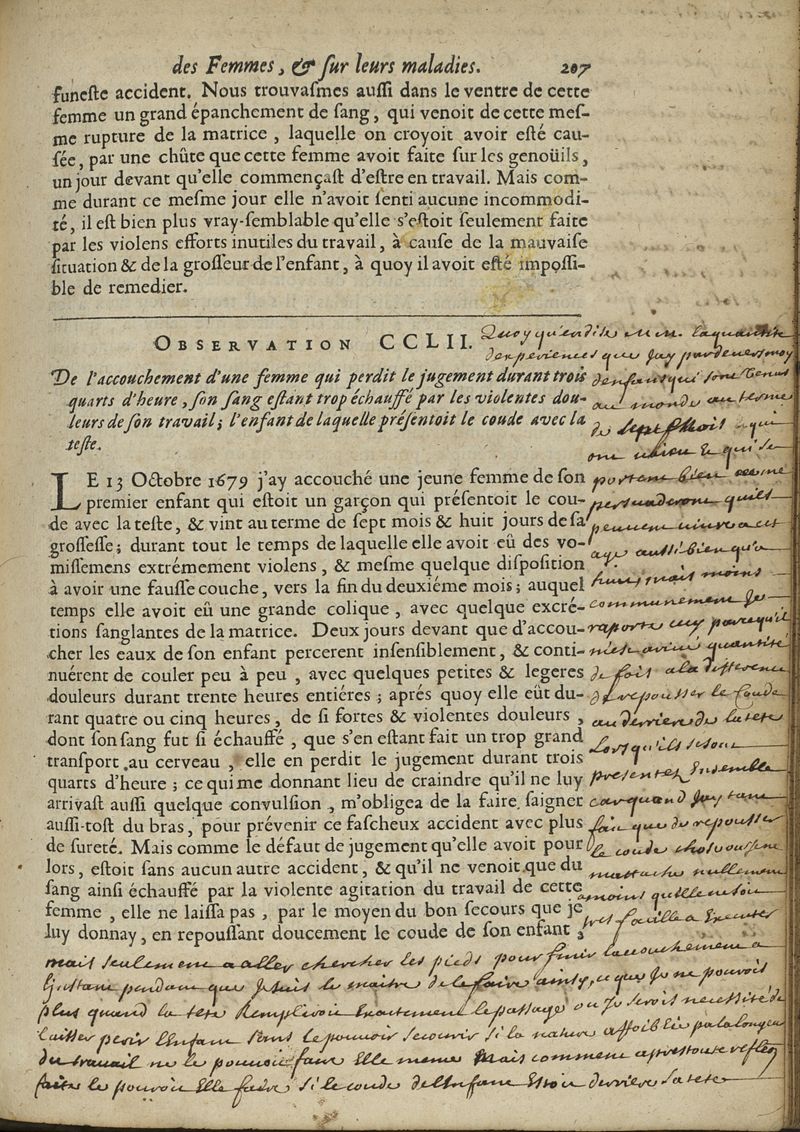 des Femmes, & ſur leurs maladies. 207
funeſte accident. Nous trouvaſmes auſſi dans le ventre de cette
femme un grand épanchement de ſang, qui venoit de cette meſ-
me rupture de la matrice, laquelle on croyoit avoir eſté cau-
ſée, par une chûte que cette femme avoit faite ſur les genoüils,
un jour devant qu'elle commençaſt d'eſtre en travail. Mais com-
me durant ce meſme jour elle n'avoit ſenti aucune incommodi-
té, il eſt bien plus vray-ſemblable qu'elle s'eſtoit ſeulement faite
par les violens efforts inutiles du travail, à cauſe de la mauvaiſe
ſituation & de la groſſeur de l'enfant, à quoy il avoit eſté impoſſi-
ble de remedier.
OBSERVATION CCLII.
De l'accouchement d'une femme qui perdit le jugement durant trois
quarts d'heure, ſon ſang eſtant trop échauffé par les violentes dou-
leurs de ſon travail; l'enfant de laquelle préſentoit le coude avec la
teſte.
LE 13 Octobre 1679 j'ay accouché une jeune femme de ſon
premier enfant qui eſtoit un garçon qui préſentoit le cou-
de avec la teſte, & vint au terme de ſept mois & huit jours de ſa
groſſeſſe; durant tout le temps de laquelle elle avoit eû des vo-
miſſemens extrémement violens, & meſme quelque diſpoſition
à avoir une fauſſe couche, vers la fin du deuxiéme mois; auquel
temps elle avoit eû une grande colique, avec quelque excré-
tions ſanglantes de la matrice. Deux jours devant que d'accou-
cher les eaux de ſon enfant percerent inſenſiblement, & conti-
nuérent de couler peu à peu, avec quelques petites & legeres
douleurs durant trente heures entiéres; aprés quoy elle eût du-
rant quatre ou cinq heures, de ſi fortes & violentes douleurs,
dont ſon ſang fut ſi échauffé, que s'en eſtant fait un trop grand
tranſport au cerveau, elle en perdit le jugement durant trois
quarts d'heure; ce qui me donnant lieu de craindre qu'il ne luy
arrivaſt auſſi quelque convulſion, m'obligea de la faire ſaigner
auſſi-toſt du bras, pour prévenir ce faſcheux accident avec plus
de ſureté. Mais comme le défaut de jugement qu'elle avoit pour
lors, eſtoit ſans aucun autre accident, & qu'il ne venoit que du
ſang ainſi échauffé par la violente agitation du travail de cette
femme, elle ne laiſſa pas, par le moyen du bon ſecours que je
luy donnay, en repouſſant doucement le coude de ſon enfant,
Quoy qu'en dise
que jay pardevers moy
denfans qui sont venus
au monde au terme
de sept mois
qui se
portent bien
persuaderont quils
peuvent vivre a cet
age aussi bien qu'a
huit mais moins
communement je
de fois a la
de repousser le coude
au derriere de la teste
Lorsquils se sont
presentes Ensemble
car quand
de repousser
le coude
nullement
moins quelle ne soit
mais seulement a aller chercher les pieds pour finir laccouchement
pendant que Jestois le maitre de le faire ainsy, ce que Je ne pouvois
plus quand la teste Remplissoit Exactement le passage
laisser perir Lenfant sans le pouvoir secourir si la nature affoiblie par la longeur
du travail ne le pouvoit faire Elle meme Mais comment apres toute reflexion
faite le pouvoit Elle faire si le coude de lenfant Estoit derriere sa teste